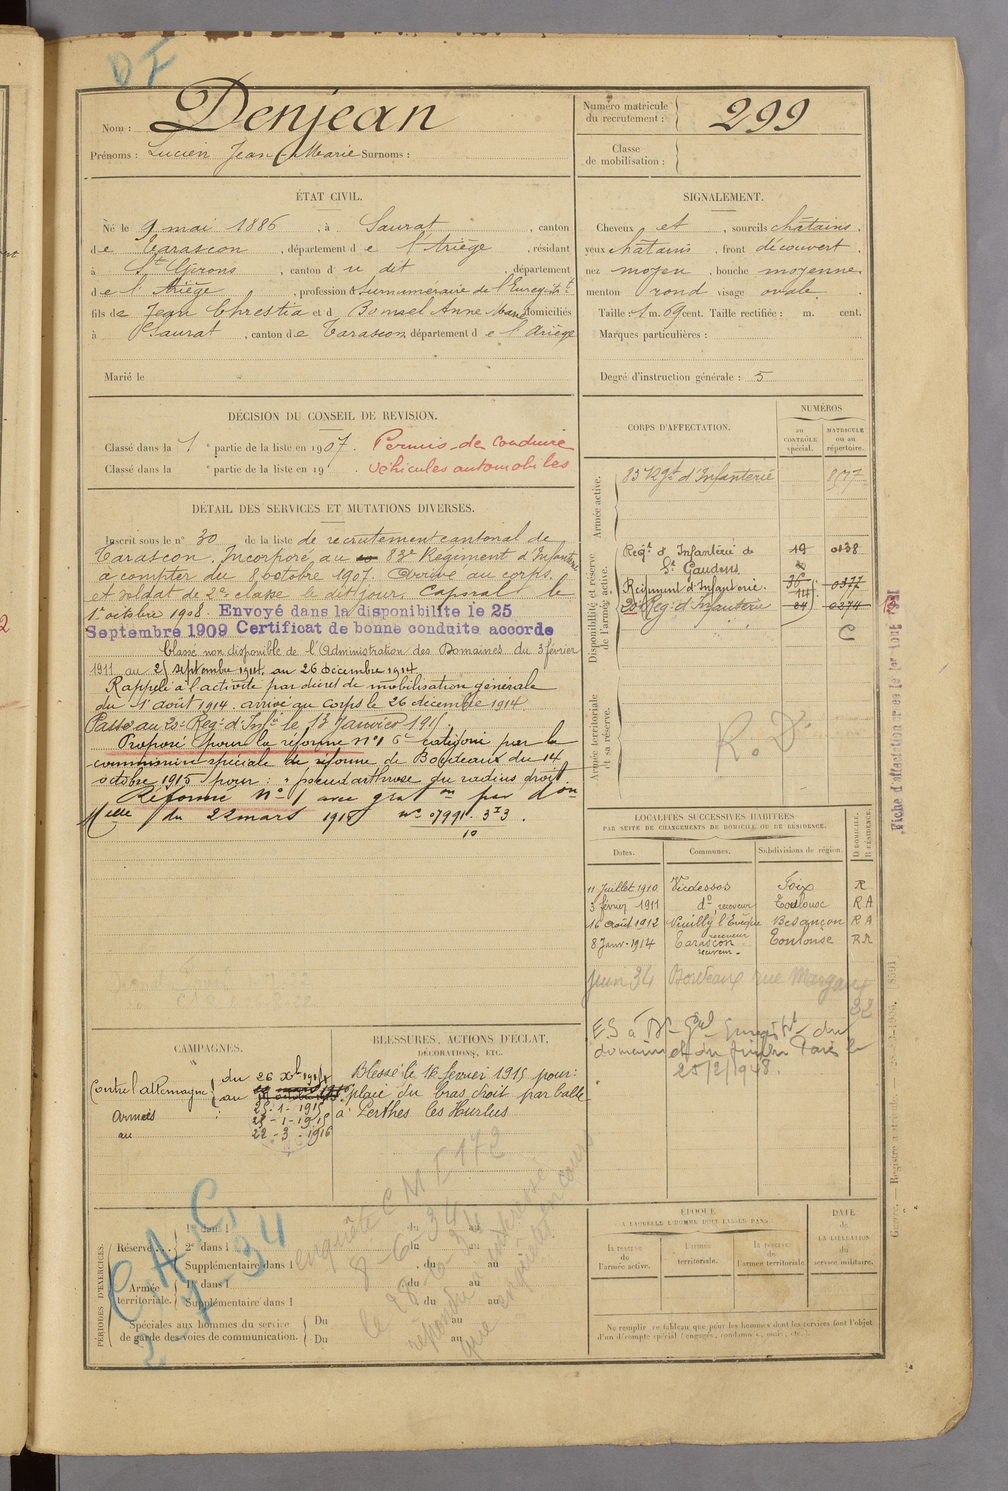 DF
Nom : Denjean
Prénoms : Lucien Jean-Marie Surnoms :
Numéro matricule du recrutement : 299
Classe de mobilisation :
ÉTAT CIVIL.
Né le 9 mai 1886, à Saurat, canton
de Tarascon, département de l'Ariège, résidant
à St Girons, canton du dit, département
de l'Ariège, profession de Surnuméraire de l'Enregistt
fils de Jean Chrestia et d Bonnel Anne Marie domiciliés
à Saurat, canton de Tarascon, département de l'Ariège
Marié le
SIGNALEMENT.
Cheveux et , sourcils châtains,
yeux châtains, front découvert,
nez moyen, bouche moyenne,
menton rond visage ovale.
Taille : 1 m. 69 cent. Taille rectifiée : m. cent.
Marques particulières :
Degré d'instruction générale : 5
DÉCISION DU CONSEIL DE REVISION.
Classé dans la 1e partie de la liste en 1907. Permis de conduire
Classé dans la e partie de la liste en 19 . véhicules automobiles
DÉTAIL DES SERVICES ET MUTATIONS DIVERSES.
Inscrit sous le n° 30 de la liste de recrutement cantonal de
Tarascon. Incorporé au 83e Régiment d'Infanterie
à compter du 8 octobre 1907. Arrivé au corps
et soldat de 2e classe le dit jour. Caporal le
1er octobre 1908. Envoyé dans la disponibilité le 25
Septembre 1909 Certificat de bonne conduite accordé
Classé non disponible de l'Administration des Domaines du 3 février
1911 au 25 septembre 1914. au 26 décembre 1914
Rappelé à l'activité par décret de mobilisation générale
du 1er août 1914. arrivé au corps le 26 décembre 1914
Passé au 20e Reg. d'Infie le 13 Janvier 1915.
Proposé pour la réforme N°1 6e catégorie par la
commission spéciale de réforme de Bordeaux du 14
octobre 1915 pour : pseudarthrose du radius droit
Réformé N° 1 avec graton par don
Mlle du 22 mars 1916
CORPS D'AFFECTATION.
NUMÉROS
au contrôle spécial.
matricule ou au répertoire.
Armée active.
83e Régt d'Infanterie
Disponibilité et réserve de l'armée active.
Regt d'Infanterie de St Gaudens 19 0138
Régiment d'Infanterie. 0377
20e Reg. d'Infanterie 0374
C
Armée territoriale et sa réserve.
R. D.
LOCALITÉS SUCCESSIVES HABITÉES
PAR SUITE DE CHANGEMENTS DE DOMICILE OU DE RÉSIDENCE.
Dates. Communes. Subdivisions de région. D domicile. R résidence.
11 Juillet 1910 Vicdessos Foix R
3 février 1911 do, receveur Toulouse RA
16 Août 1912 Neuilly l'Evêque receveur Besançon RA
8 Janv. 1914 Tarascon receveur Toulouse RA
Juin 34 Bordeaux rue Margaux 32
25/2/1948.
CAMPAGNES.
Contre l'allemagne du 26 Xbre 1914
au
Armées : 25-1-1915
25-1-1915
au 22-3-1916
BLESSURES, ACTIONS D'ÉCLAT,
DÉCORATIONS, ETC.
Blessé le 16 février 1915 pour :
plaie du bras droit par balle
à Perthes les Hurlus
PÉRIODES D'EXERCICES.
Réserve... 1re dans l du au
2e dans l du au
Supplémentaire dans l du au
Armée territoriale. 1re dans l du au
Supplémentaire dans l du au
Spéciales aux hommes du service Du au
de garde des voies de communication. Du au
enquête CM I 172
8-6-34
C.A.C
2-7-34
ÉPOQUE
À LAQUELLE L'HOMME DOIT PASSER DANS
la réserve de l'armée active.
l'armée territoriale.
la réserve de l'armée territoriale
DATE de LA LIBÉRATION du service militaire.
Ne remplir ce tableau que pour les hommes dont les services font l'objet
d'un décompte spécial (engagés, condamnés, omis, etc.).